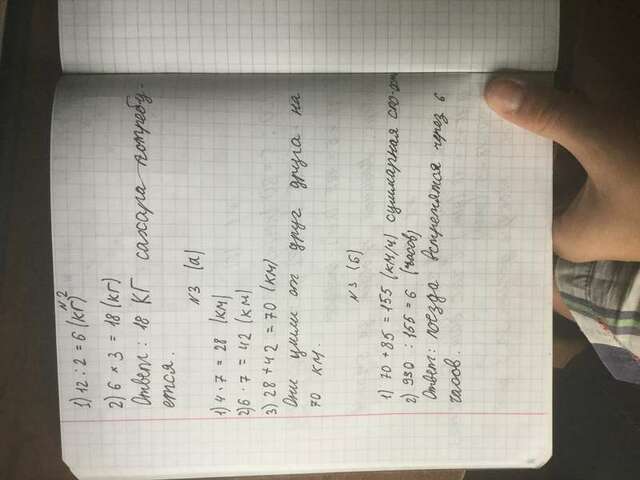 №2
1) 12 : 2 = 6 (кг)
2) 6 × 3 = 18 (кг)
Ответ: 18 КГ сахара потребу-
ется.
№3 (а)
1) 4 · 7 = 28 (км)
2) 6 · 7 = 42 (км)
3) 28 + 42 = 70 (км)
Они ушли от друг друга на
70 км.
№3 (Б)
1) 70 + 85 = 155 (км/ч) суммарная
2) 930 : 155 = 6 (часов)
Ответ: поезда встретятся через 6
часов.